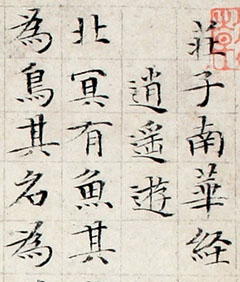 莊子南華經
逍遙遊
北冥有魚其
為鳥其名為